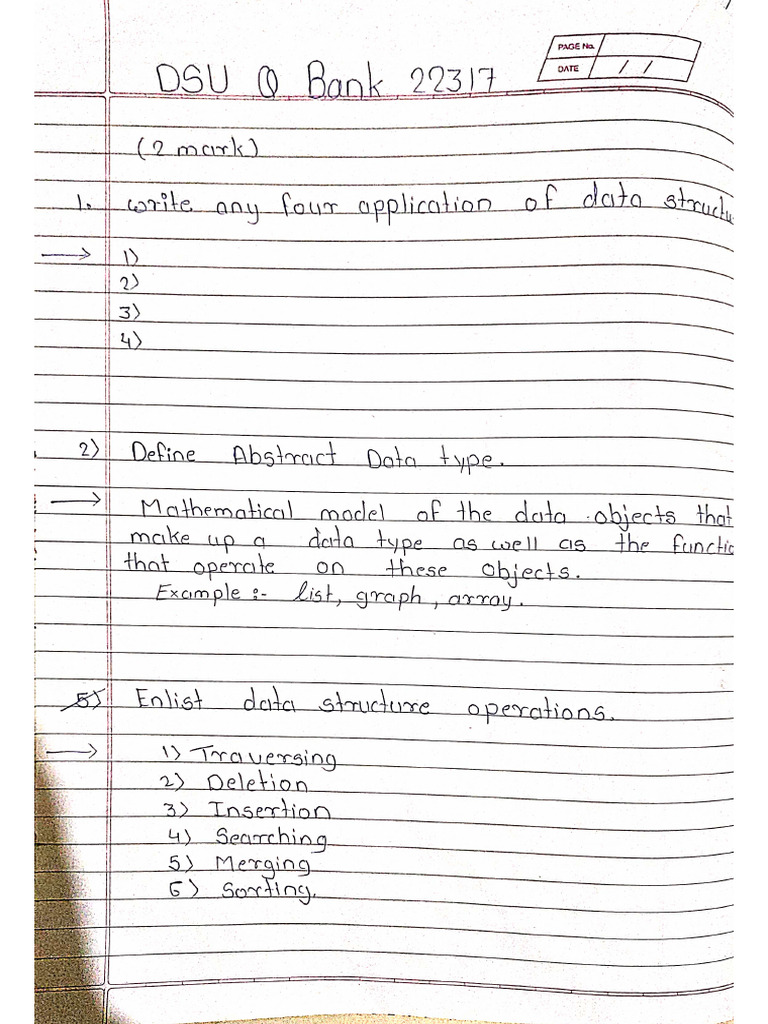 PAGE No.
DATE / /
DSU Q Bank 22317
(2 mark)
1. write any four application of data structu
→ 1)
2)
3)
4)
2) Define Abstract Data type.
→ Mathematical model of the data objects that
make up a data type as well as the functio
that operate on these objects.
Example :- list, graph, array.
5) Enlist data structure operations.
→ 1) Traversing
2) Deletion
3) Insertion
4) Searching
5) Merging
6) Sorting.